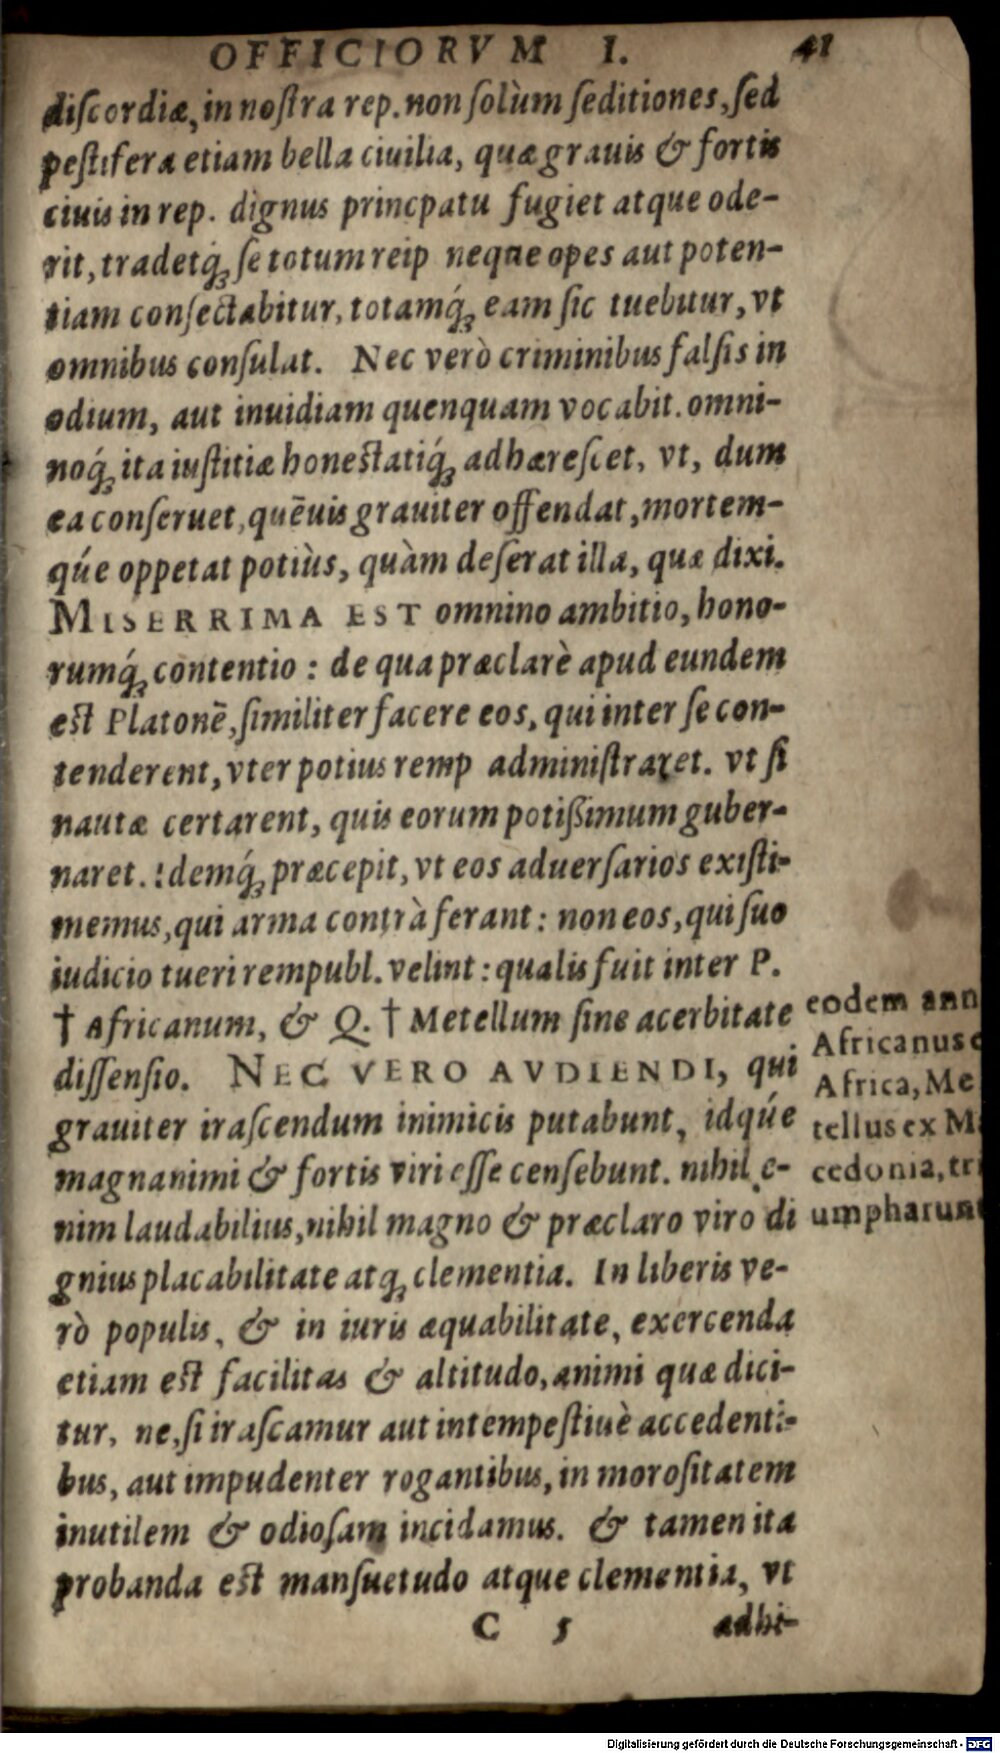 OFFICIORVM I. 41
diſcordiæ, in noſtra rep. non ſolùm ſeditiones, ſed
peſtifera etiam bella ciuilia, quæ grauis & fortis
ciuis in rep. dignus princpatu fugiet atque ode-
rit, tradetq́; ſe totum reip neque opes aut poten-
tiam conſectabitur, totamq́; eam ſic tuebitur, vt
omnibus conſulat. Nec verò criminibus falſis in
odium, aut inuidiam quenquam vocabit. omni-
noq́; ita iuſtitiæ honeſtatiq́; adhæreſcet, vt, dum
ea conſeruet, quēuis grauiter offendat, mortem-
qúe oppetat potiùs, quàm deſerat illa, quæ dixi.
MISERRIMA EST omnino ambitio, hono-
rumq́; contentio: de qua præclarè apud eundem
eſt Platonē, ſimiliter facere eos, qui inter ſe con-
tenderent, vter potius remp adminiſtraret. vt ſi
nautæ certarent, quis eorum potißimum guber-
naret. Idemq́; præcepit, vt eos aduerſarios exiſti-
memus, qui arma contrà ferant: non eos, qui ſuo
iudicio tueri rempubl. velint: qualis fuit inter P.
† Africanum, & Q. † Metellum ſine acerbitate
diſſenſio. NEC VERO AVDIENDI, qui
grauiter iraſcendum inimicis putabunt, idqúe
magnanimi & fortis viri eſſe cenſebunt. nihil e-
nim laudabilius, nihil magno & præclaro viro di
gnius placabilitate atq; clementia. In liberis ve-
rò populis, & in iuris æquabilitate, exercenda
etiam eſt facilitas & altitudo, animi quæ dici-
tur, ne, ſi iraſcamur aut intempeſtiuè accedenti-
bus, aut impudenter rogantibus, in moroſitatem
inutilem & odioſam incidamus. & tamen ita
probanda eſt manſuetudo atque clementia, vt
C 5 adhi-
eodem ann
Africanus
Africa, Me
tellus ex M
cedonia, tri
umpharunt
Digitalisierung gefördert durch die Deutsche Forschungsgemeinschaft - DFG